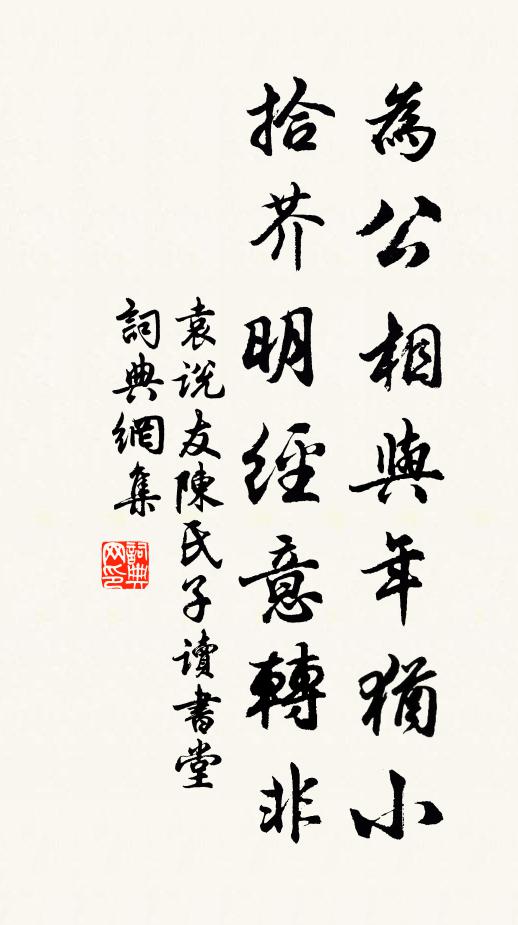 為公相與年猶小
拾芥明經意轉非
袁說友陳氏子讀書堂
詞典網集
詞典网印